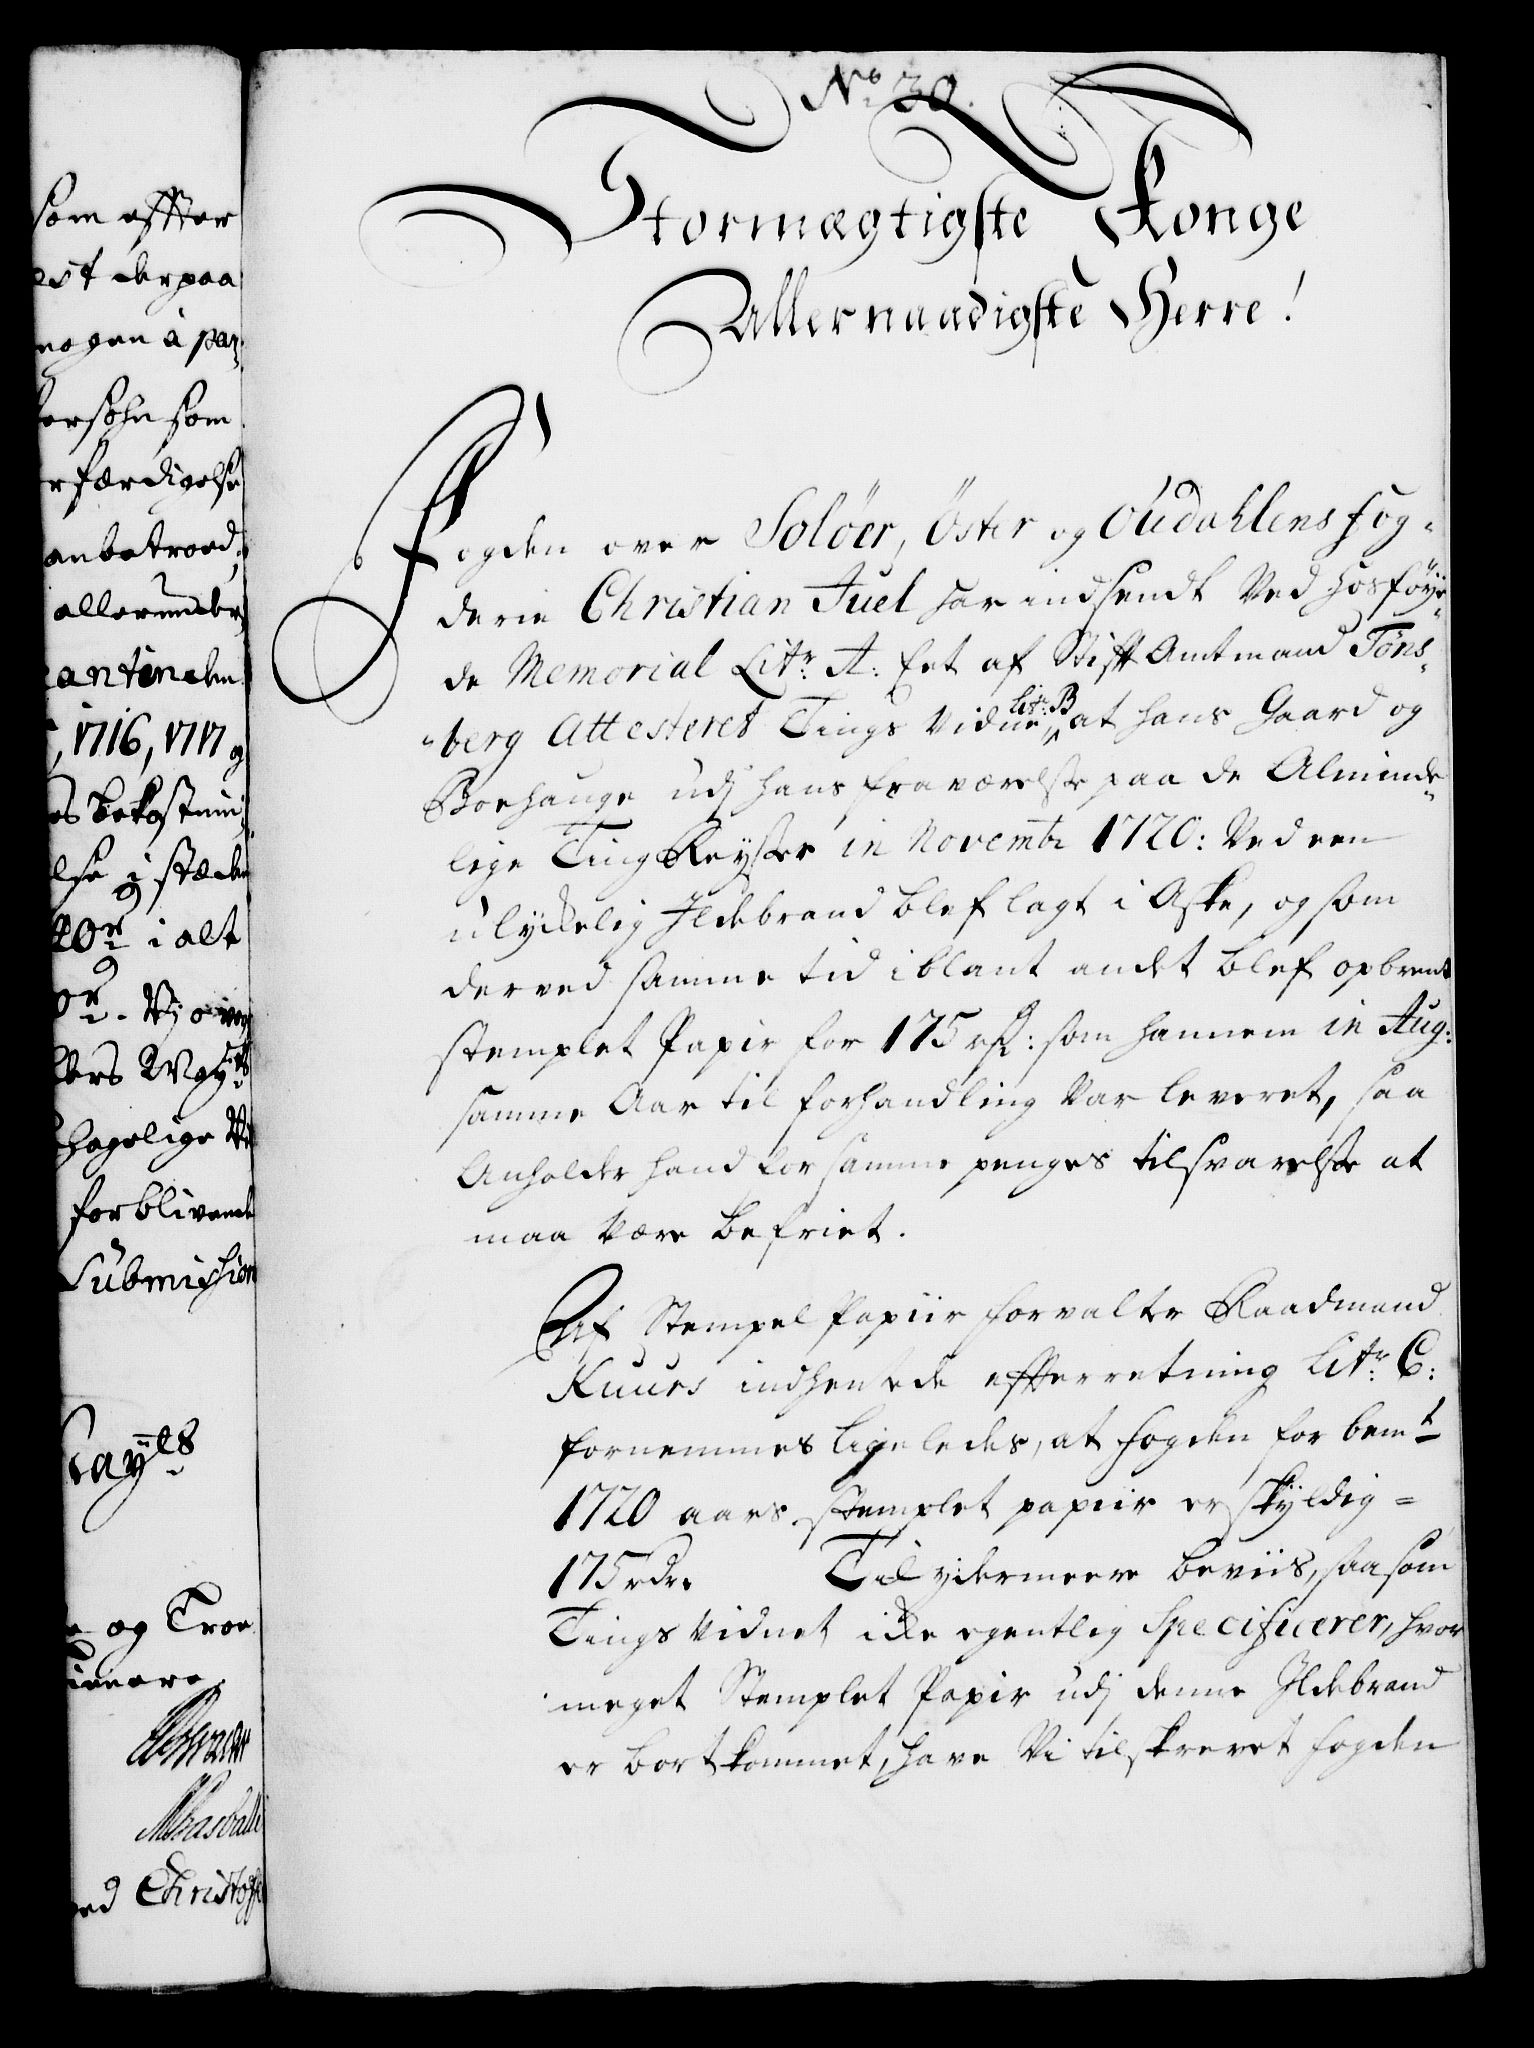 som effter
est derpaa
nogen à par¬
ersohn som
rfærdigelse
anbetroed¬
allerunder¬
antinden
, 1716, 1717 og
es bekostni¬
else i stæden
20r i alt
Vj o
lers May.ts
hagelige
forblivende
Submission
May.ts
e og Troe
ienere
ved Christoff
No 30.
Stormægtigste Konge
Allernaadigste Herre!
Fogden over Soløer, Øster og Oudahlens fog¬
derie Christian Juel har indsendt Ved hosføye¬
de Memorial Litr. A: Eet af Stift Amtmand Töns¬
berg Attesteret Tings Vidne, Litr: B at hans Gaard og
Boehauge udj hans fraværelse paa de Alminde¬
lige Ting Reyser in Novembr 1720: Ved een
ulyckelig Ildebrand blef lagt i Aske, og som
derved samme tid iblant andet blef opbrent
stemplet Papir for 175 rd: som hannem in Aug:
samme Aar til forhandling var leveret, saa
Anholder hand for samme penges tilsvarelse at
maa være befriet.
Af Stempel Papiir forvalter Raadmand
Kuurs indhentede efferretning Litr. C:
fornemmes ligeledes, at fogden for bemt
1720 aars stemplet papiir er skyldig =
175 rdr. Til ydermeere beviis, saasom
Tings Vidnet icke egentlig Specificerer, hvor
meget Stemplet Papir udj denne Ildebrand
er bortkommet, have Vi tilskrevet fogden